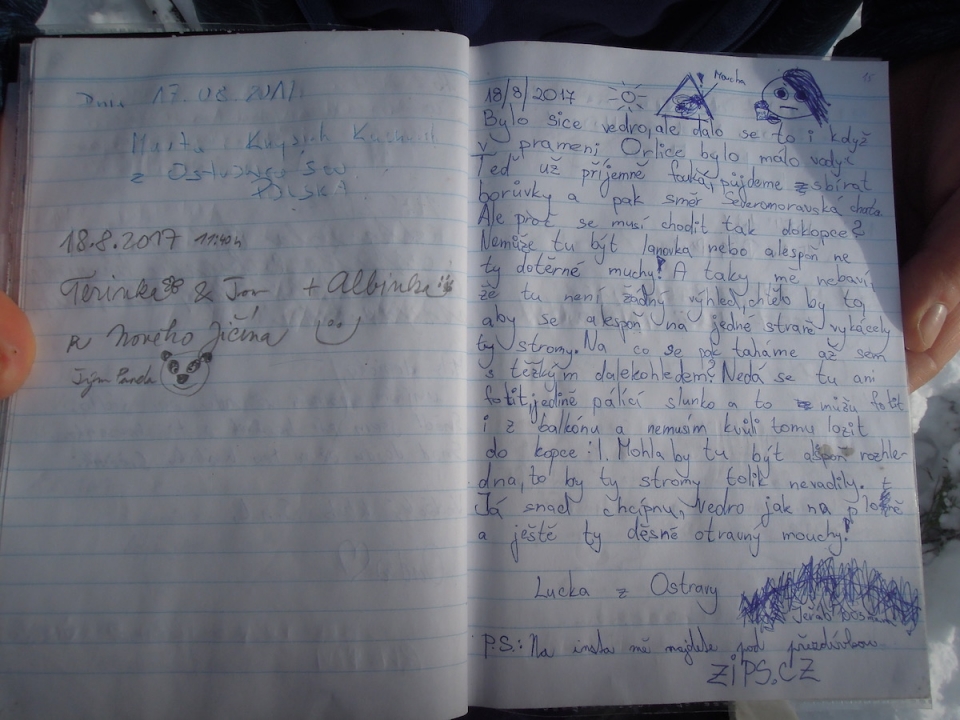 Dnia 17.08.2017
z
POLSKA
18.8.2017 1140h
Terinka & Tom + Albinka
z Nového Jičína
Tým Panda
Moucha
18/8/2017
Bylo sice vedro, ale dalo se to i když
v prameni Orlice bylo málo vody.
Teď už příjemně fouká, půjdeme sbírat
borůvky a pak směr Severomoravská chata.
Ale proč se musí chodit tak dokopce?
Nemůže tu být lanovka nebo alespoň ne
ty dotěrné muchy! A taky mě nebaví,
že tu není žádný výhled, chtělo by to,
aby se alespoň na jedné straně vykácely
ty stromy. Na co se pak taháme až sem
s těžkým dalekohledem? Nedá se tu ani
fotit, jedině pálící slunko a to můžu fotit
i z balkónu a nemusím kvůli tomu lozit
do kopce :l. Mohla by tu být alspoň rozhle-
dna, to by ty stromy tolik nevadily.
Já snad chcípnu, Vedro jak na plotně
a ještě ty děsně otravný mouchy!
Lucka z Ostravy
Jeřáb
P.S.: Na insta mě najdete pod přezdívkou
ZiPS.CZ